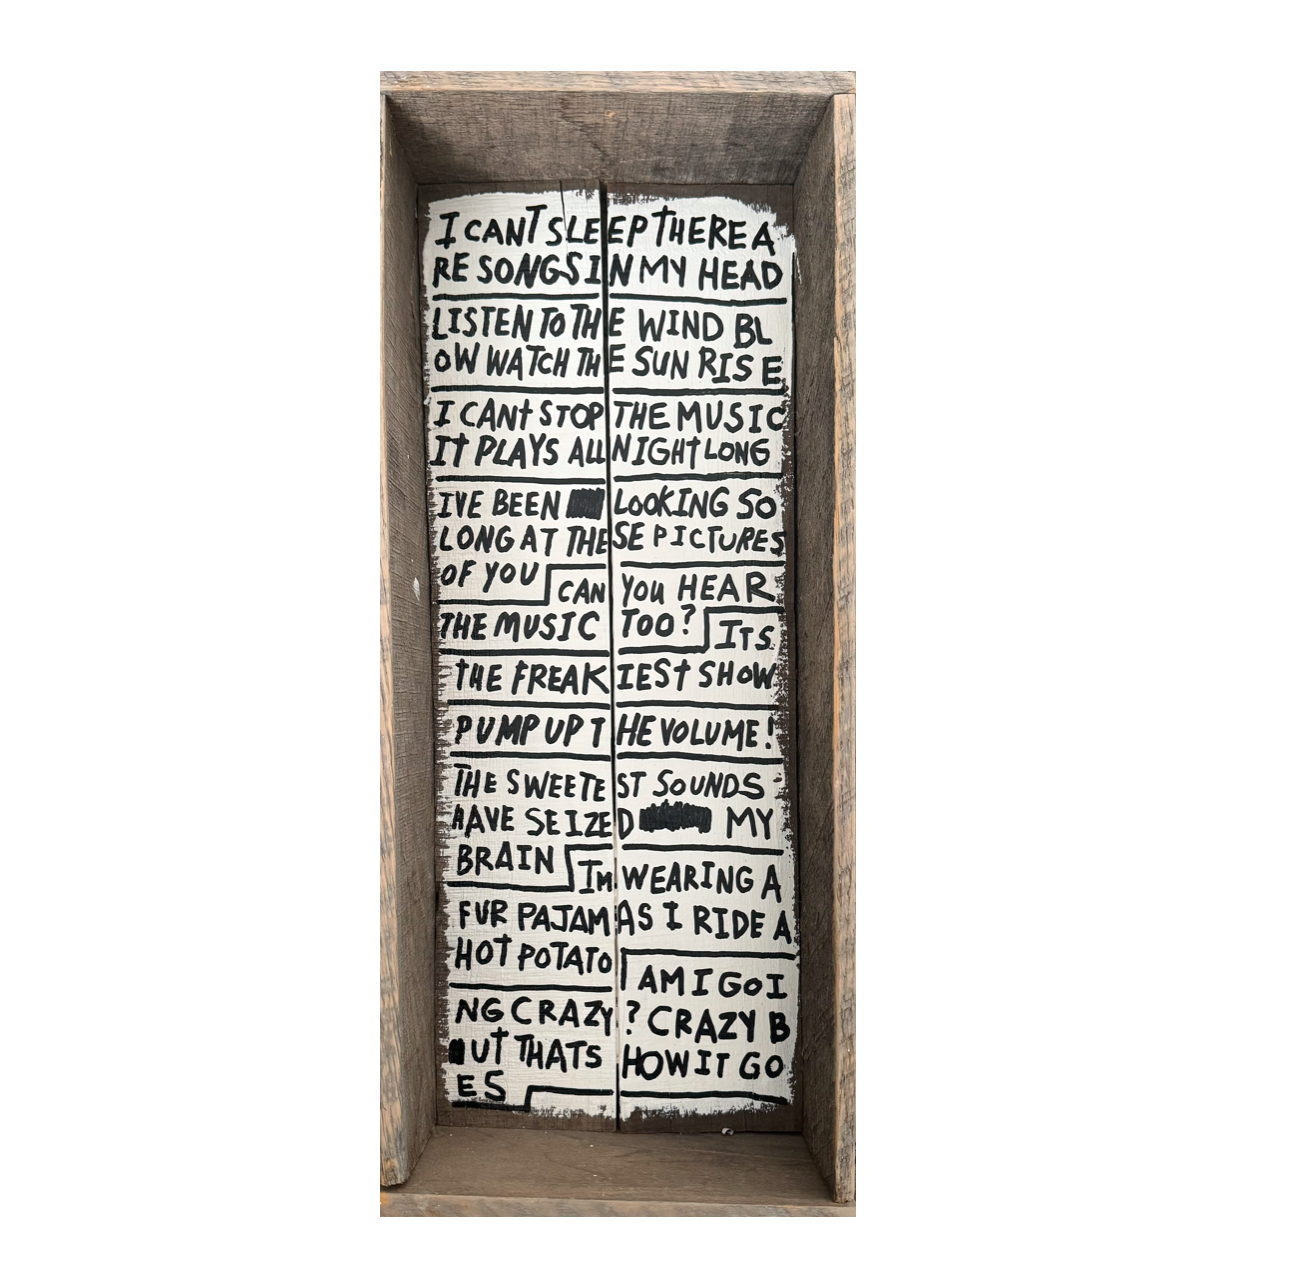 I CANT SLEEP THERE A
RE SONGS IN MY HEAD
LISTEN TO THE WIND BL
OW WATCH THE SUN RISE
I CANT STOP THE MUSIC
IT PLAYS ALL NIGHT LONG
IVE BEEN LOOKING SO
LONG AT THESE PICTURES
OF YOU CAN YOU HEAR
THE MUSIC TOO? ITS
THE FREAKIEST SHOW
PUMP UP THE VOLUME!
THE SWEETEST SOUNDS
HAVE SEIZED MY
BRAIN IM WEARING A
FUR PAJAMAS I RIDE A
HOT POTATO AM I GOI
NG CRAZY? CRAZY B
UT THATS HOW IT GO
ES